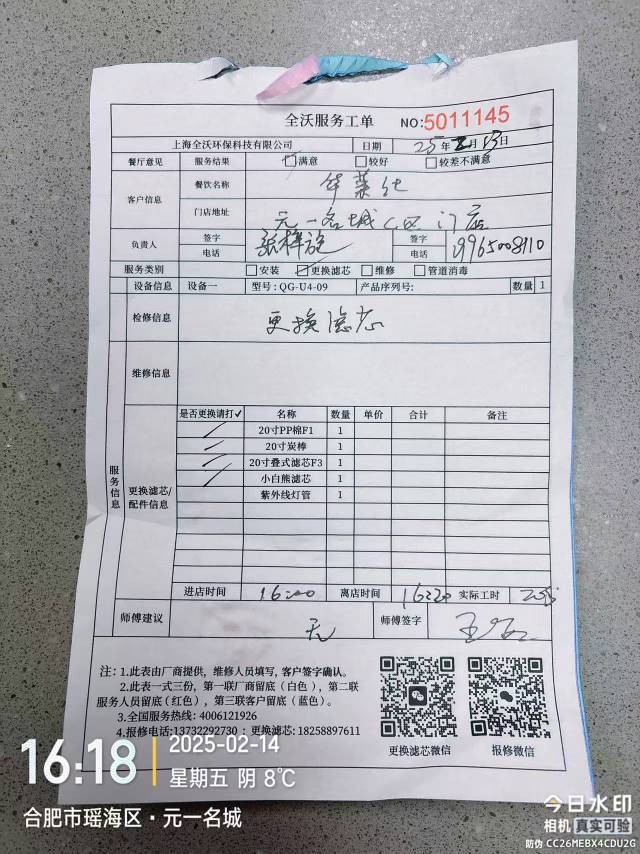 全沃服务工单 NO:5011145
上海全沃环保科技有限公司 日期 25年2月13日
餐厅意见 服务结果 满意 较好 较差不满意
客户信息 餐饮名称 华莱士
门店地址 元一名城C区门店
负责人 签字 电话 签字 电话
服务类别 安装 更换滤芯 维修 管道消毒
设备信息 设备一 型号:QG-U4-09 产品序列号: 数量 1
检修信息 更换滤芯
维修信息
服务信息
更换滤芯/配件信息
是否更换请打✓ 名称 数量 单价 合计 备注
20寸PP棉F1 1
20寸炭棒 1
20寸叠式滤芯F3 1
小白熊滤芯 1
紫外线灯管 1
进店时间 16:00 离店时间 16:20 实际工时
师傅建议 无 师傅签字
注:1.此表由厂商提供,维修人员填写,客户签字确认。
2.此表一式三份,第一联厂商留底(白色),第二联
服务人员留底(红色),第三联客户留底(蓝色)。
3.全国服务热线:4006121926
4.报修电话:13732292730;更换滤芯:18258897611
更换滤芯微信 报修微信
16:18 2025-02-14
星期五 阴 8℃
合肥市瑶海区·元一名城
今日水印
相机 真实可验
防伪 CC26MEBX4CDU2G